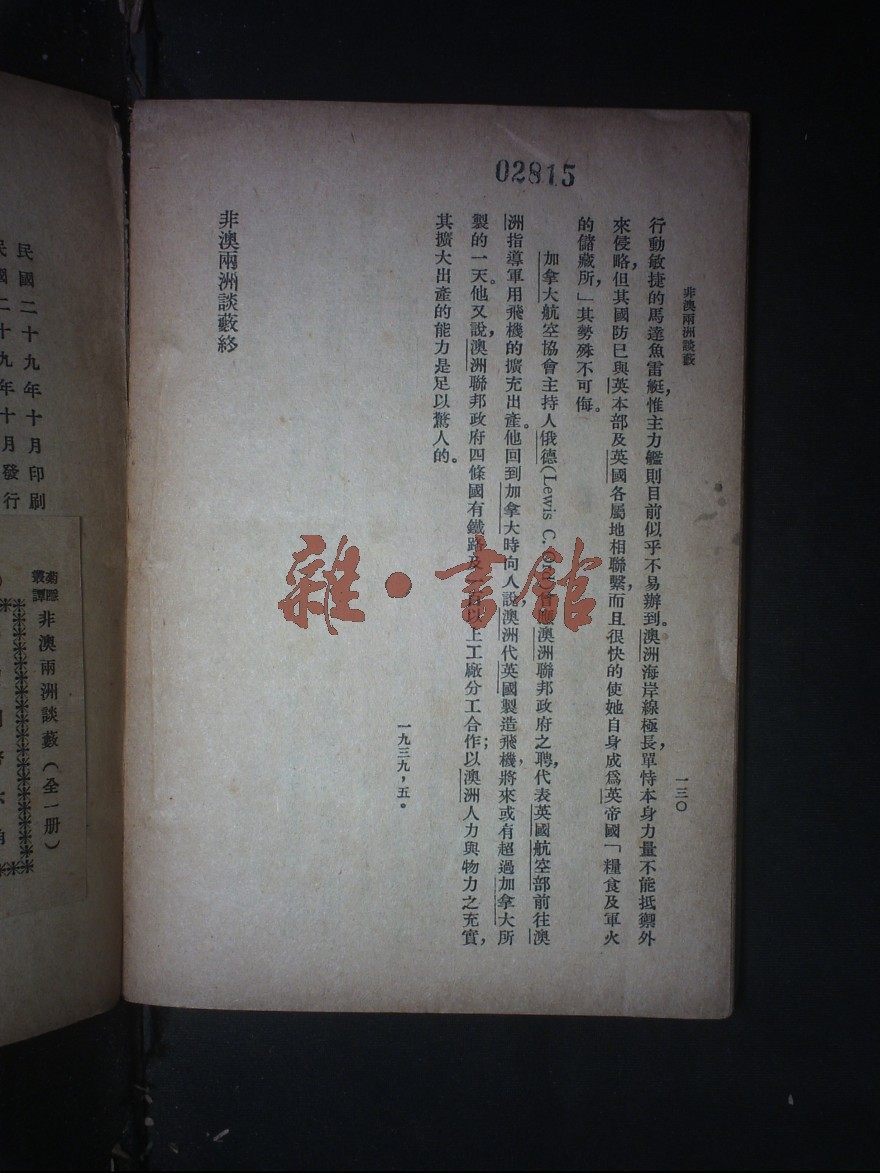 02815
非澳兩洲談藪
一三〇
行動敏捷的馬達魚雷艇，惟主力艦則目前似乎不易辦到。澳洲海岸線極長，單恃本身力量不能抵禦外
來侵略，但其國防已與英本部及英國各屬地相聯繫，而且很快的使她自身成爲英帝國「糧食及軍火
的儲藏所，」其勢殊不可侮。
加拿大航空協會主持人俄德(Lewis C. 澳洲聯邦政府之聘，代表英國航空部前往澳
洲指導軍用飛機的擴充出產。他回到加拿大時向人說，澳洲代英國製造飛機，將來或有超過加拿大所
製的一天。他又說，澳洲聯邦政府四條國有鐵路及以上工廠分工合作；以澳洲人力與物力之充實，
其擴大出產的能力是足以驚人的。
一九三九，五。
非澳兩洲談藪終
雜·書館
民國二十九年十月印刷
民國二十九年十月發行
叢譚
非澳兩洲談藪（全一册）